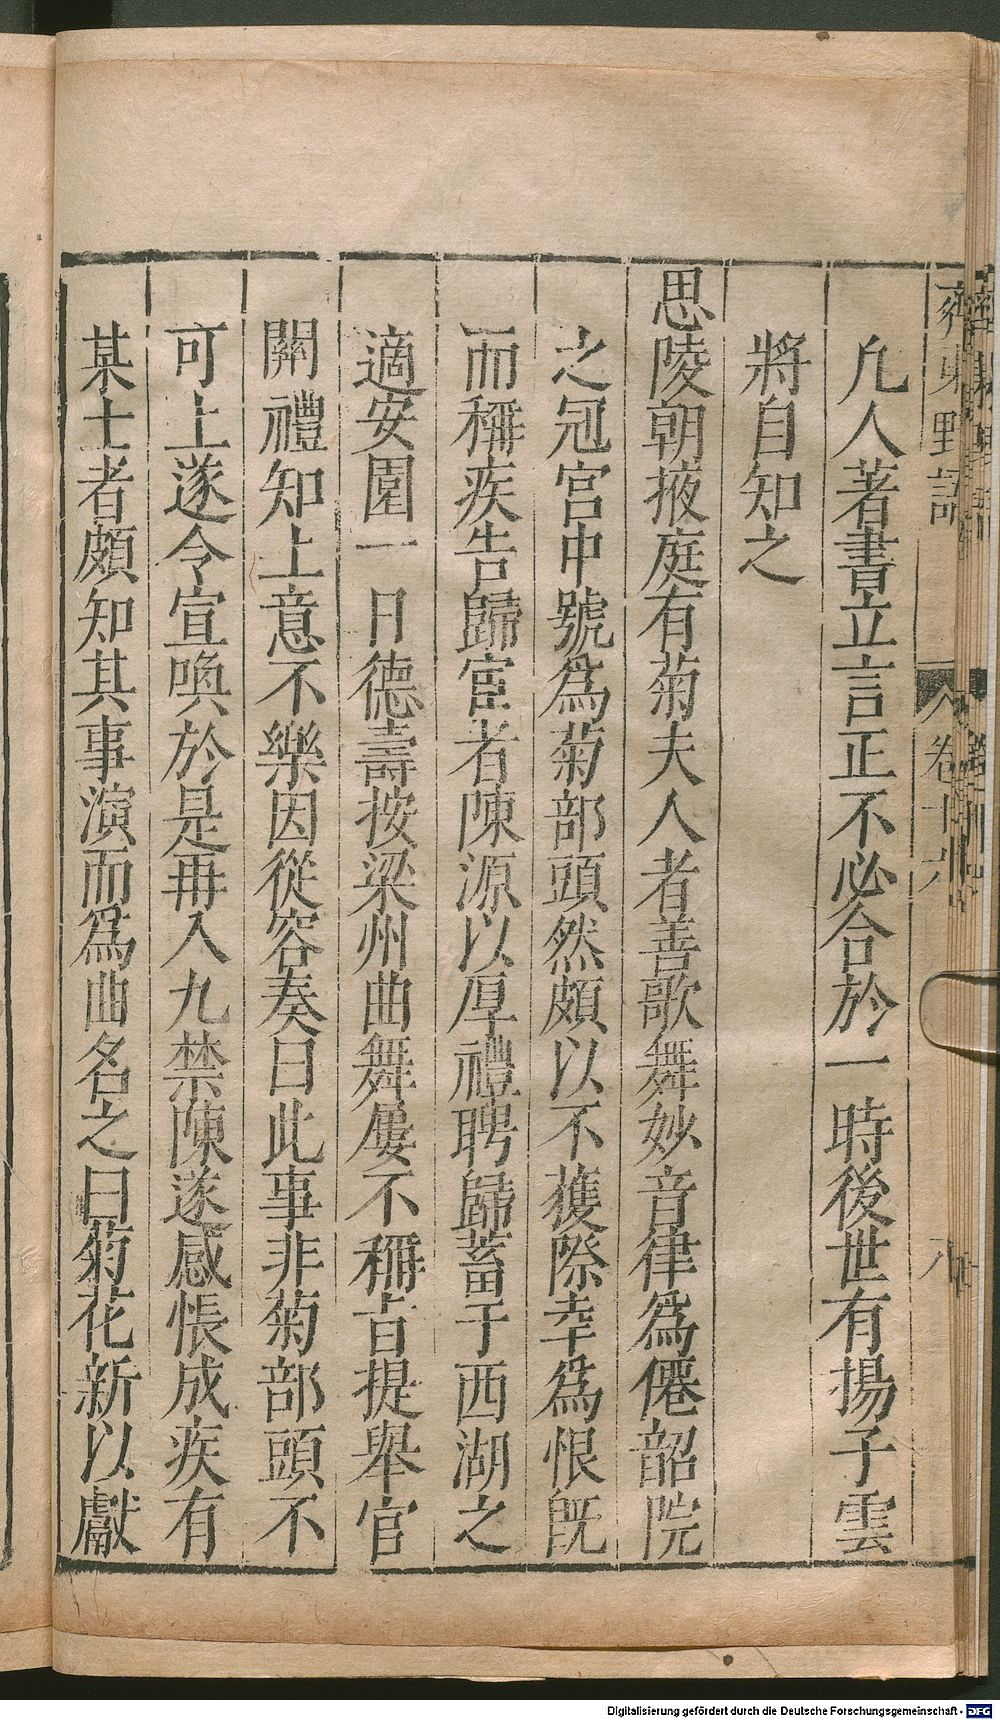 齊東野語
卷十六
八
凡人著書立言正不必合於一時後世有揚子雲
將自知之
思陵朝掖庭有菊夫人者善歌舞妙音律為僊韶院
之冠宮中號為菊部頭然頗以不獲際幸為恨既
而稱疾告歸宦者陳源以厚禮聘歸蓄于西湖之
適安園一日德壽按梁州曲舞屢不稱旨提舉官
關禮知上意不樂因從容奏曰此事非菊部頭不
可上遂令宣喚於是再入九禁陳遂感悵成疾有
某士者頗知其事演而為曲名之曰菊花新以獻
Digitalisierung gefördert durch die Deutsche Forschungsgemeinschaft - DFG